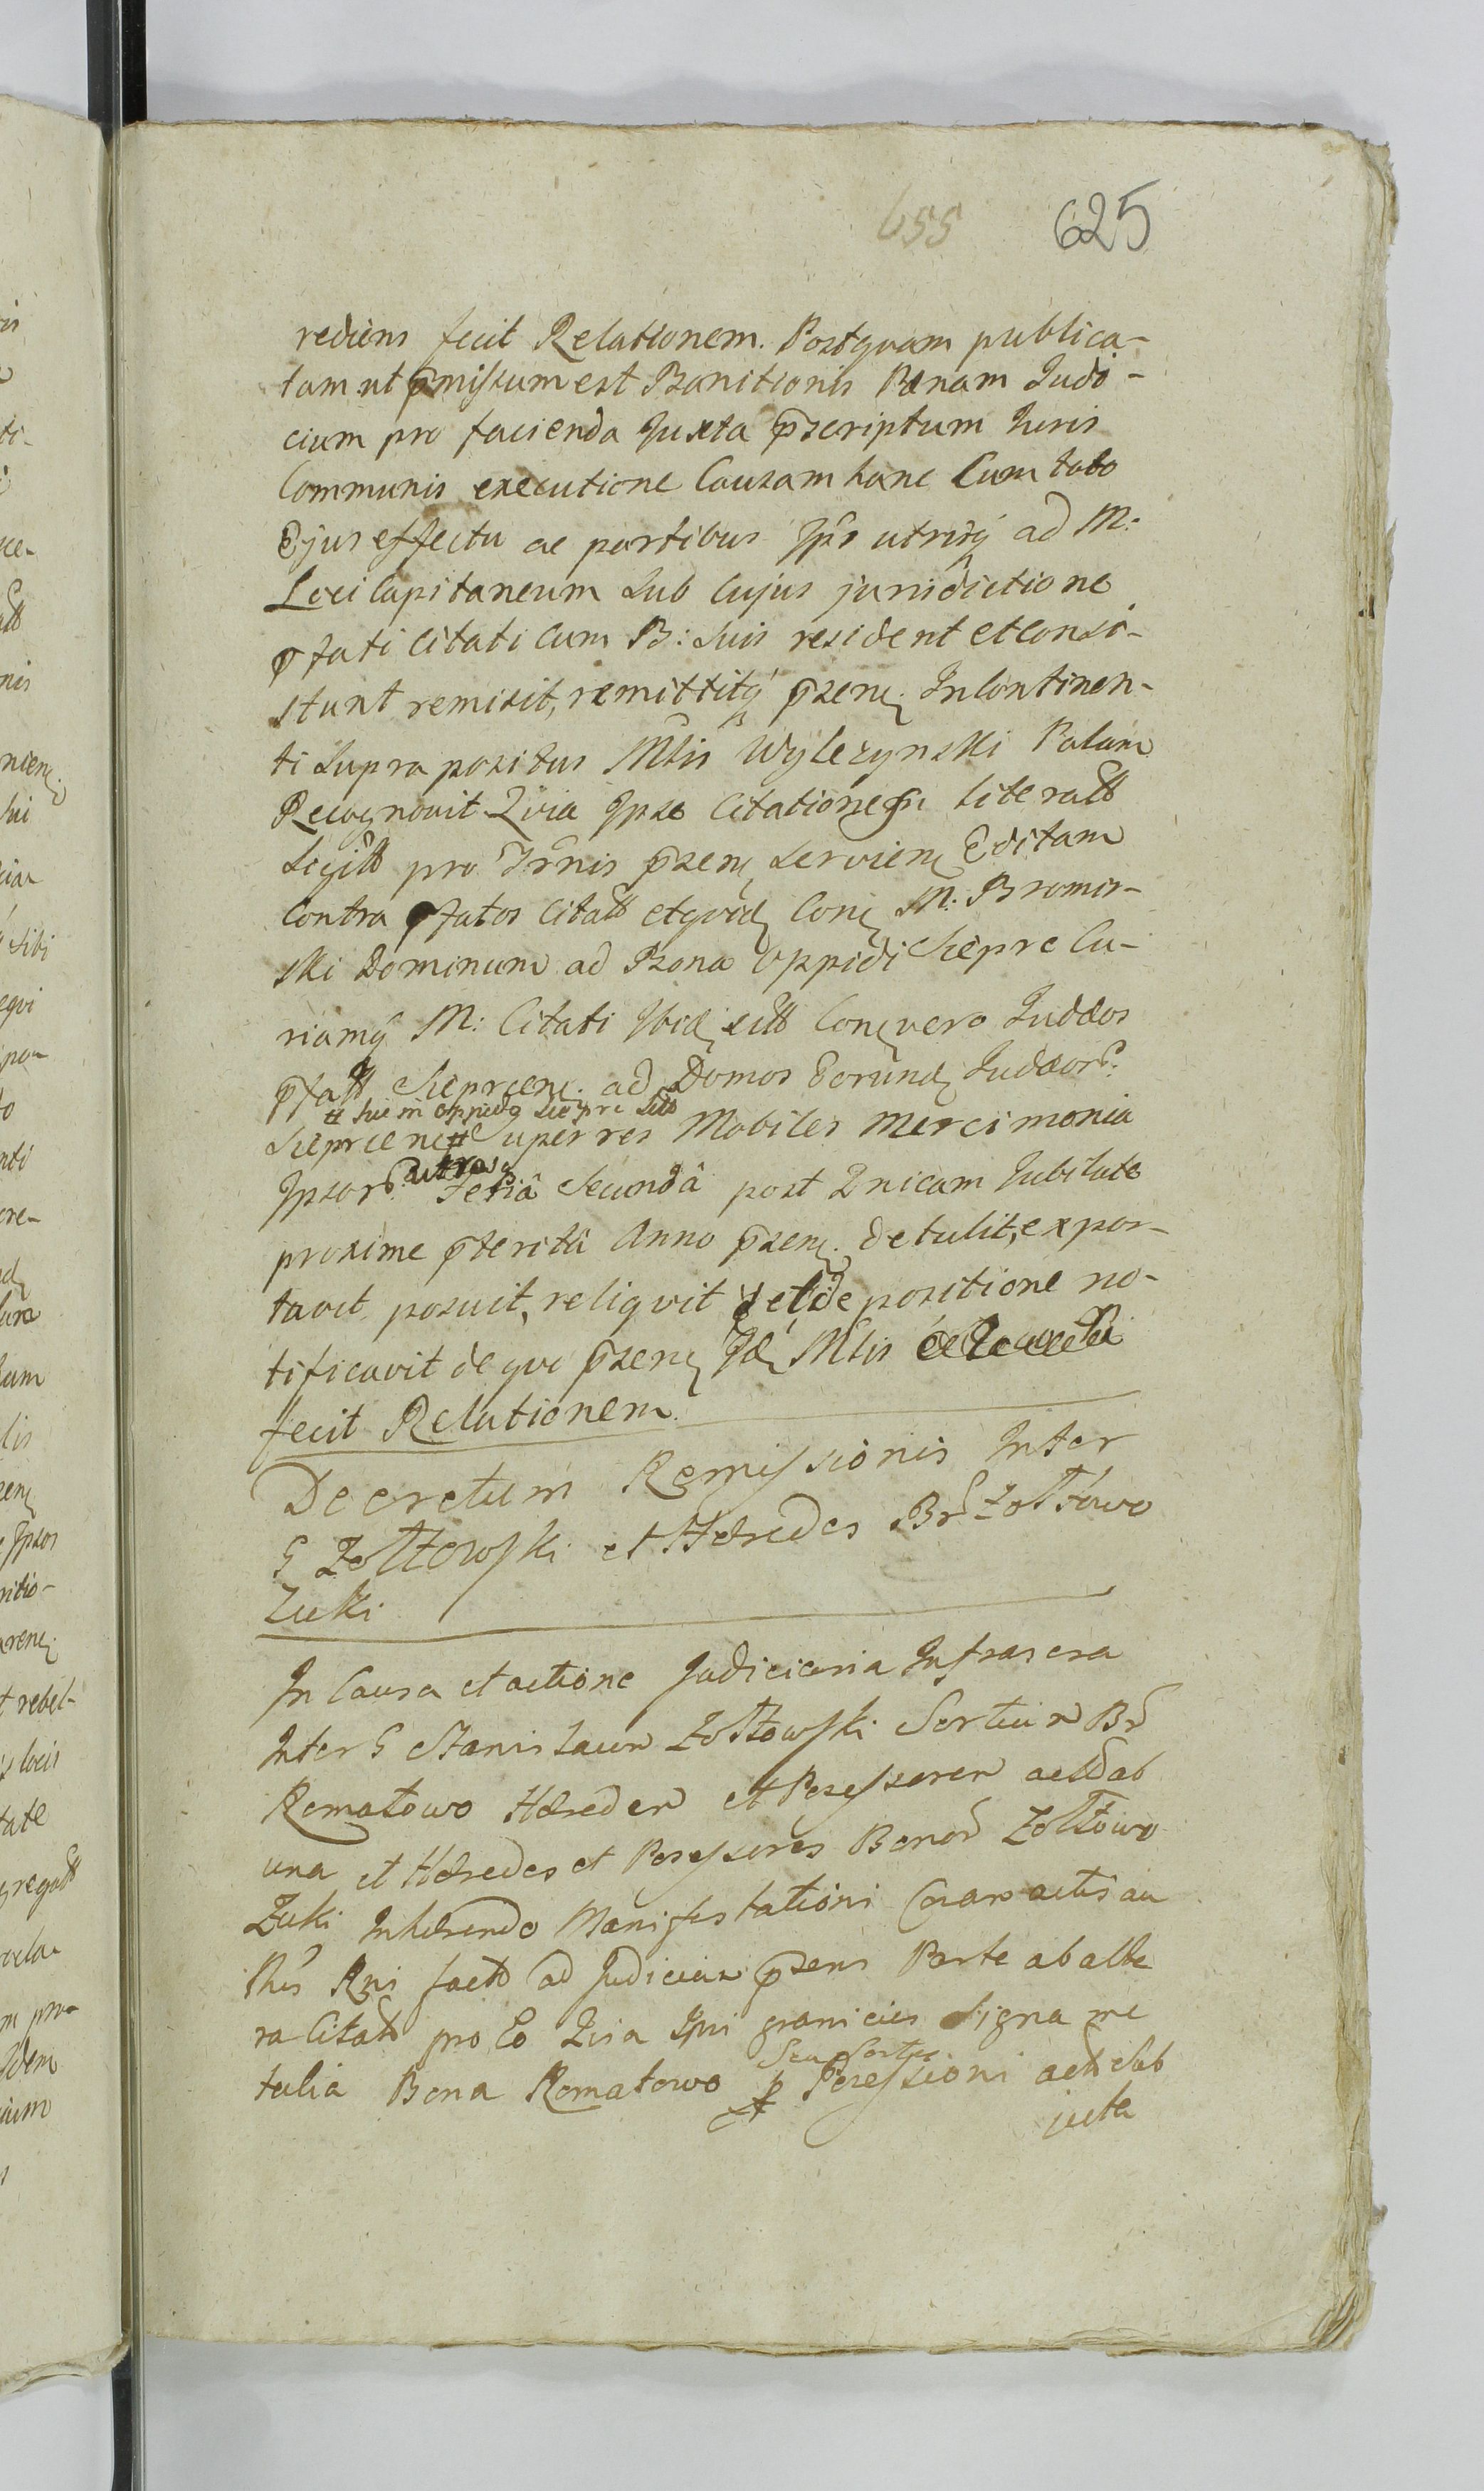 655 625
rediens fecit Relationem. Postquam publica-
tam ut p̄missum est Banitionis Pœnam Judi-
cium pro facienda Juxta p̄scriptum Juris
Communis executione Causam hanc Cum toto
Ejus effectu ac partibus Jpis utrisq ad M:
Loci Capitaneum Sub Cujus jurisdictione
p̄fati Citati Cum B: Suis resident et Consi-
stunt remisit, remittitq p̄sen. Jn Continen-
ti Supra positus Mlis Wylezynski Palam
Recognovit Quia Jpse Citationem literatt
Sigitt pro Trnis p̄sen servien Editam
Contra p̄fatos Citatt et quid Con M: Bromir-
ski Dominum ad Bona Oppidi Siepre Cu-
riamq M: Citati Jbid sitt Con vero Judæos
p̄fatt Sieprcen. ad Domos Eorund Judæor:
# Sui in oppido Siepre Sitt
Sieprcen # Super res Mobiles Mercimonia
Jpsor. Feriâ Secundâ post Dnicam Jubilate
proxime p̄teritâ Anno p̄sen. detulit, expor-
tavit posuit, reliquit et de positione no-
tificavit de quo p̄sen Jd Mlis
fecit Relationem.
Decretum Remissionis Inter
G Zołtowski et Hæredes Br Zołtowo
Zuki
In Causa et actione Judiciaria Infrascra
Inter G Stanislaum Zołtowski Sortium Br
Romatowo Hæredem et Possessorem act ab
una et Hæredes et Possessores Bonor Zołtowo
Zuki Inhærendo Manifestationi Coram actis au
Rni fact ad Judicium p̄sens Parte ab alte
ra Citatt pro Eo Quia Ipsi granicies Signa me
Seu Sortes
talia Bona Romatowo Possessioni act Sub
jecta